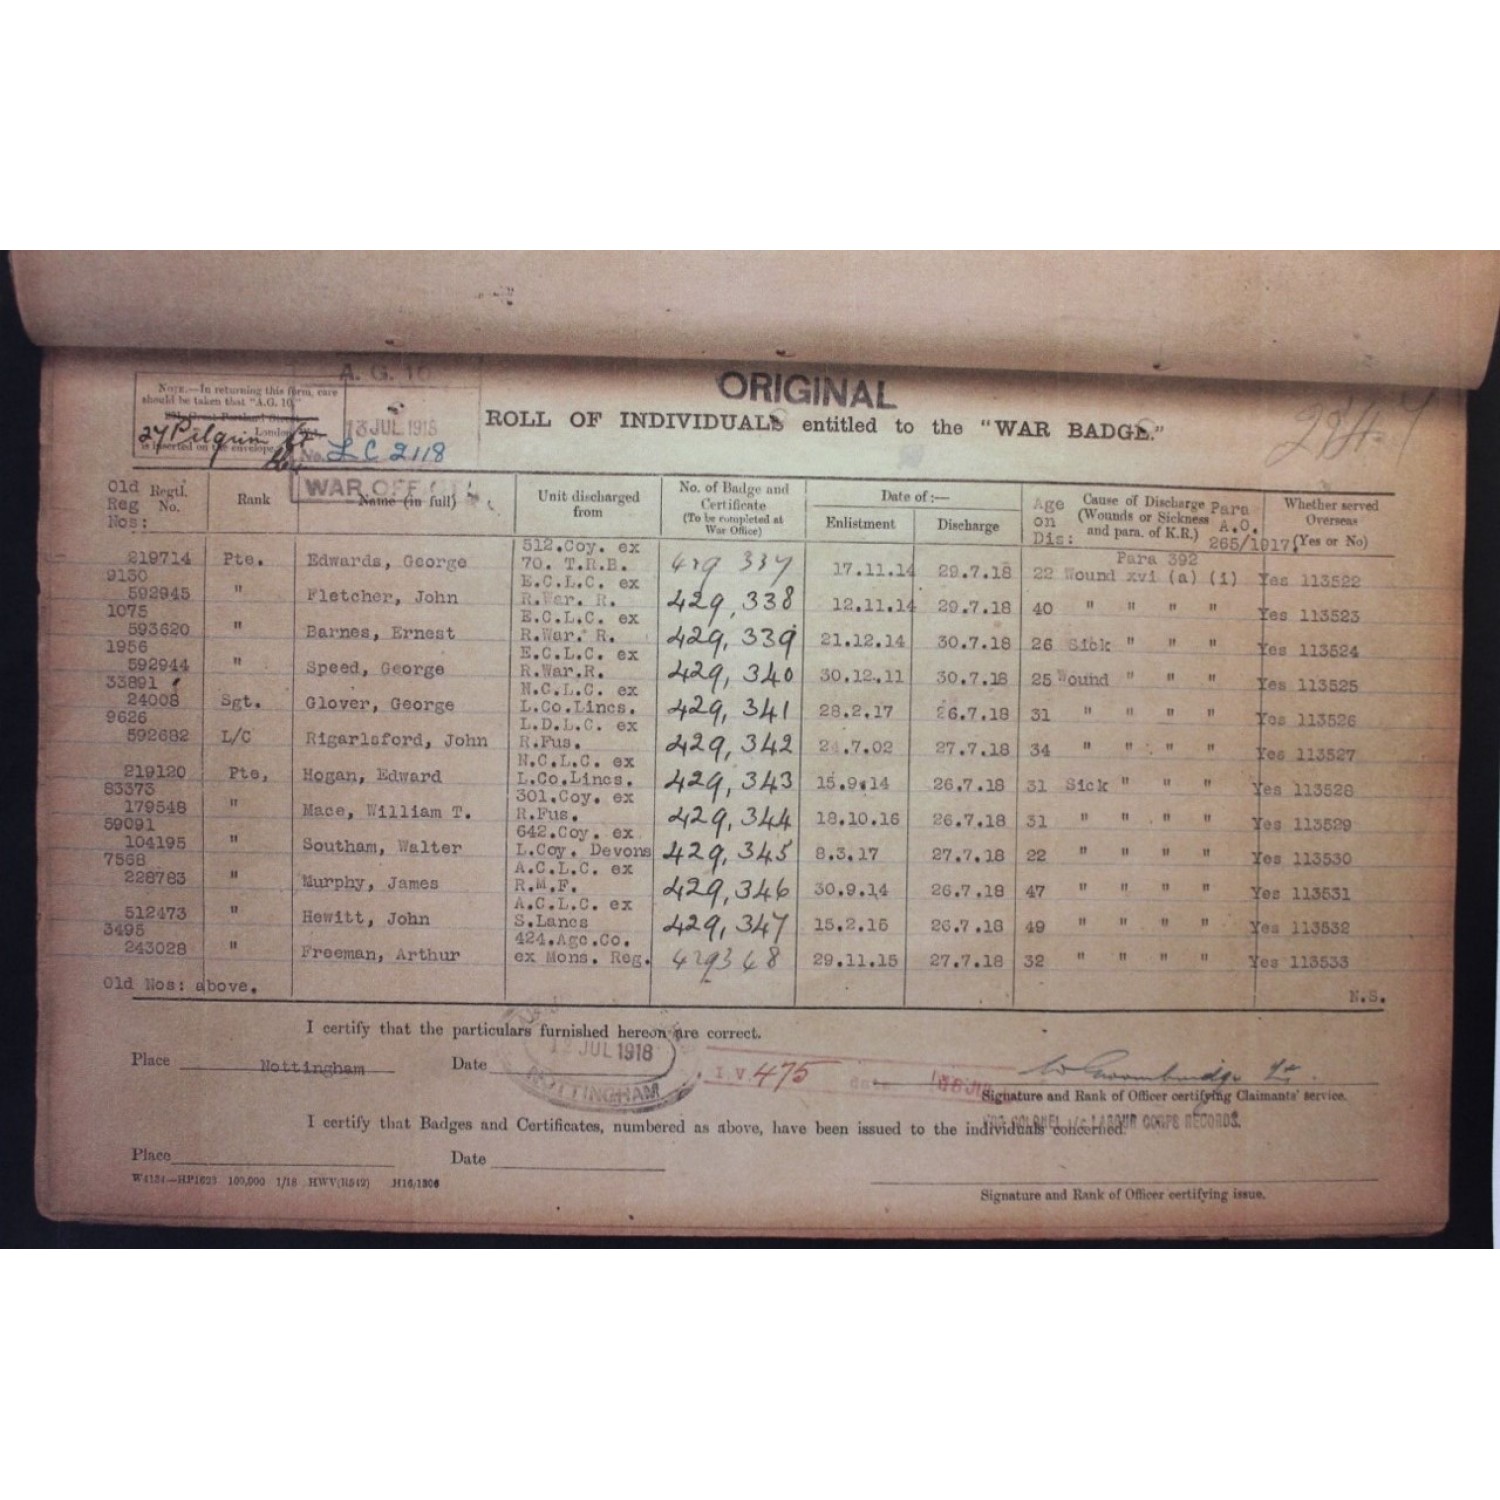 ORIGINAL
A. G. 10
NOTE.—In returning this form, care
should be taken that "A.G. 10,"
London
27 Pilgrim St
is inserted on the envelope.
13 JUL 1918
No. LC 2118
WAR OFFICE
ROLL OF INDIVIDUALS entitled to the "WAR BADGE."
Old Reg Nos: Regtl. No. Rank Name (in full) Unit discharged from No. of Badge and Certificate (To be completed at War Office) Date of:— Enlistment Discharge Age on Dis: Cause of Discharge (Wounds or Sickness and para. of K.R.) Para A.O. 265/1917. Whether served Overseas (Yes or No)
512.Coy. ex Para 392
219714 Pte. Edwards, George 70. T.R.B. 429 337 17.11.14 29.7.18 22 Wound xvi (a) (i) Yes 113522
9130 E.C.L.C. ex
592945 " Fletcher, John R.War. R. 429,338 12.11.14 29.7.18 40 " " " " Yes 113523
1075 E.C.L.C. ex
593620 " Barnes, Ernest R.War. R. 429,339 21.12.14 30.7.18 26 Sick " " " Yes 113524
1956 E.C.L.C. ex
592944 " Speed, George R.War.R. 429,340 30.12.11 30.7.18 25 Wound " " " Yes 113525
33891 N.C.L.C. ex
24008 Sgt. Glover, George L.Co.Lincs. 429,341 28.2.17 26.7.18 31 " " " " Yes 113526
9626 L.D.L.C. ex
592682 L/C Rigarlsford, John R.Fus. 429,342 7.02 27.7.18 34 " " " " Yes 113527
N.C.L.C. ex
219120 Pte, Hogan, Edward L.Co.Lincs. 429,343 15.9.14 26.7.18 31 Sick " " " Yes 113528
83373 301.Coy. ex
179548 " Mace, William T. R.Fus. 429,344 18.10.16 26.7.18 31 " " " " Yes 113529
59091 642.Coy. ex
104195 " Southam, Walter L.Coy. Devons 429,345 8.3.17 27.7.18 22 " " " " Yes 113530
7568 A.C.L.C. ex
228783 " Murphy, James R.M.F. 429,346 30.9.14 26.7.18 47 " " " " Yes 113531
A.C.L.C. ex
512473 " Hewitt, John S.Lancs 429,347 15.2.15 26.7.18 49 " " " " Yes 113532
3495 424.Agc.Co.
243028 " Freeman, Arthur ex Mons. Reg. 429348 29.11.15 27.7.18 32 " " " " Yes 113533
Old Nos: above. N.S.
I certify that the particulars furnished hereon are correct.
Place Nottingham Date JUL 1918 NOTTINGHAM I.V 475 date
Signature and Rank of Officer certifying Claimants' service.
COLONEL i/c LABOUR CORPS RECORDS.
I certify that Badges and Certificates, numbered as above, have been issued to the individuals concerned.
Place Date
W4134—HP1623 100,000 1/18 HWV(R542) H16/1306
Signature and Rank of Officer certifying issue.